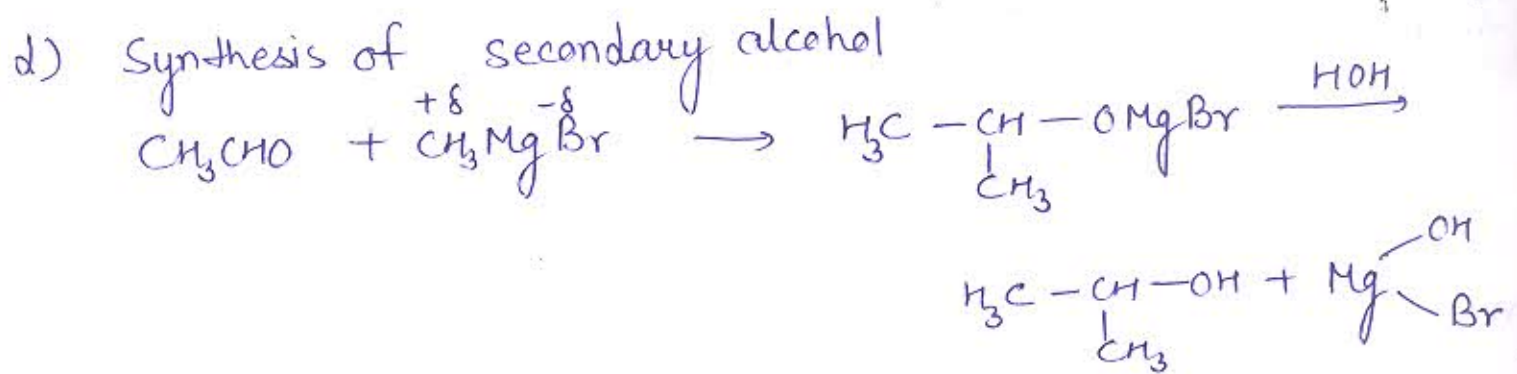 d) Synthesis of secondary alcohol
+δ -δ
CH₃CHO + CH₃MgBr → H₃C – CH – OMgBr HOH →
CH₃
H₃C – CH – OH + Mg OH
Br
CH₃